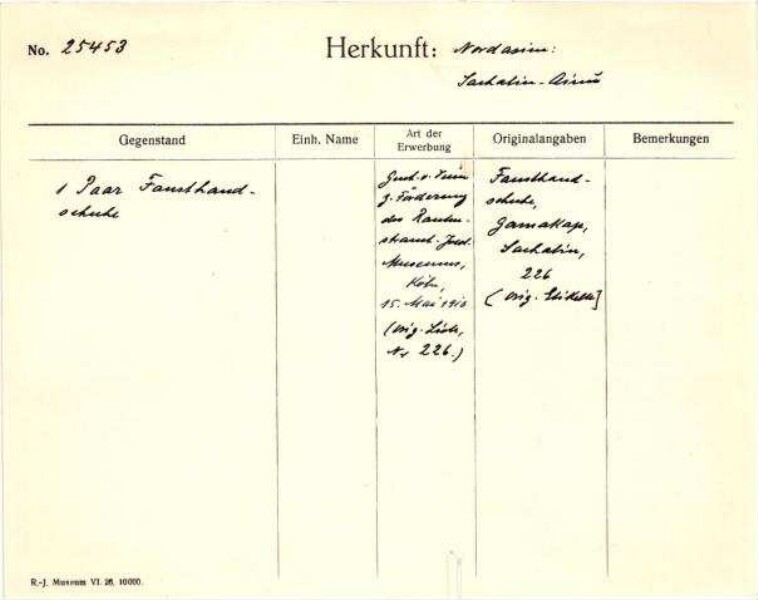 No. 25453
Herkunft: Nordasien:
Sachalin-Ainu
Gegenstand
Einh. Name
Art der
Erwerbung
Originalangaben
Bemerkungen
1 Paar Fausthand-
schuhe
v. Verein
z. Förderung
des Rauten-
strauch-Joest-
Museums,
Köln,
15. Mai 1910
(Orig. Liste,
Nr 226.)
Fausthand-
schuhe,
Sachalin,
226
(Orig. Etikette)
R.-J. Museum VI. 26, 10000.